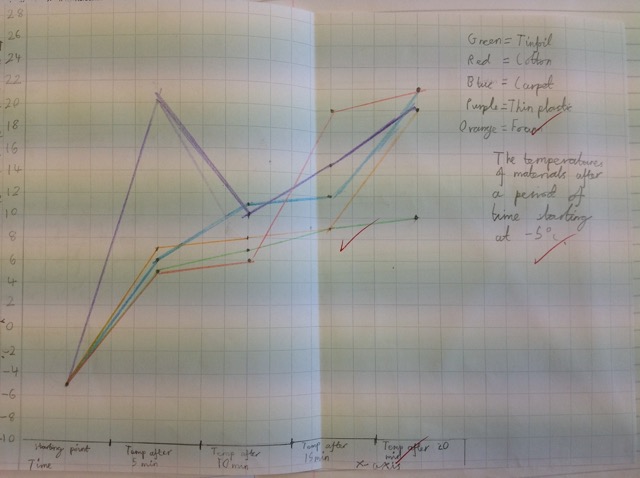 28
26
24
22
20
18
16
14
12
10
8
6
4
2
0
-2
-4
-6
-8
-10
Green = Tinfoil
Red = Cotton
Blue = Carpet
Purple = Thin plastic
Orange = Foam
The temperatures
of materials after
a period of
time starting
at -5°c
Starting point
Temp after
5 min
Temp after
10 min
Temp after
15 min
Temp after 20
min
Time
x axis